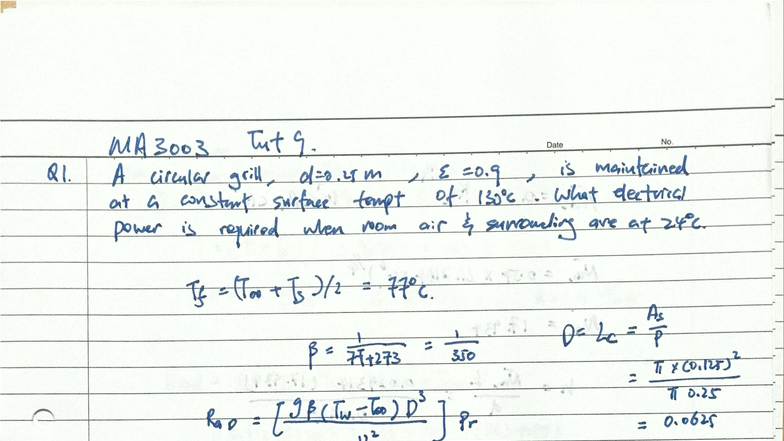 MA3003 Tut 9.
Date No.
Q1. A circular grill, d=0.25 m, ε=0.9, is maintained
at a constant surface tempt of 130°c. What electrical
power is required when room air & surrounding are at 24°c.
Tf = (T∞ + Ts)/2 = 77°c.
β = 1/(77+273) = 1/350
D = Lc = As/P
= π × (0.125)²/π 0.25
= 0.0625
RaD = [gβ(Tw - T∞) D³/ν²] Pr